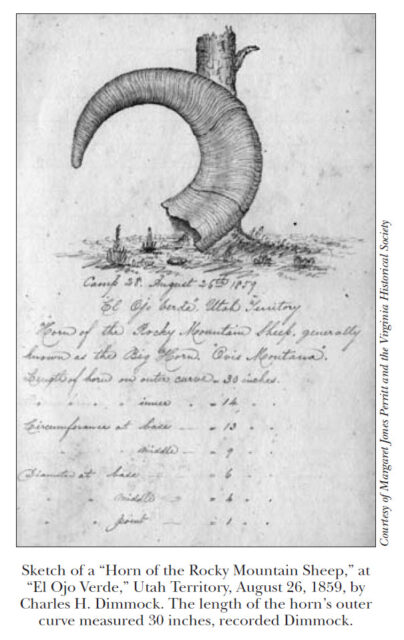 Camp 28. August 26th 1859
"El Ojo Verde," Utah Territory
Horn of the Rocky Mountain Sheep, generally
known as the Big Horn. "Ovis Montana".
Length of horn on outer curve = 30 inches.
" " " " inner " = 14 " "
Circumference at base — = 13 " "
" " middle — = 9 " "
Diameter at base — = 6 " "
" " middle — = 4 " "
" " point — = 1 " "
Courtesy of Margaret Jones Perritt and the Virginia Historical Society
Sketch of a “Horn of the Rocky Mountain Sheep,” at
“El Ojo Verde,” Utah Territory, August 26, 1859, by
Charles H. Dimmock. The length of the horn’s outer
curve measured 30 inches, recorded Dimmock.